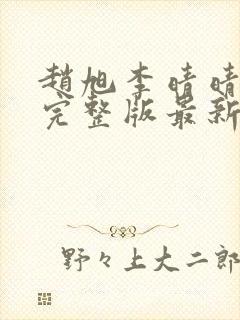 趙旭李晴晴
完整版最新
野々上大二郎